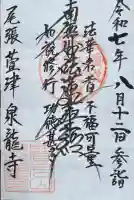 令和七年八月十二日参詣
法華の名 不福可量
南無妙法蓮華経
如説修行 功徳甚多
尾張當津泉龍寺